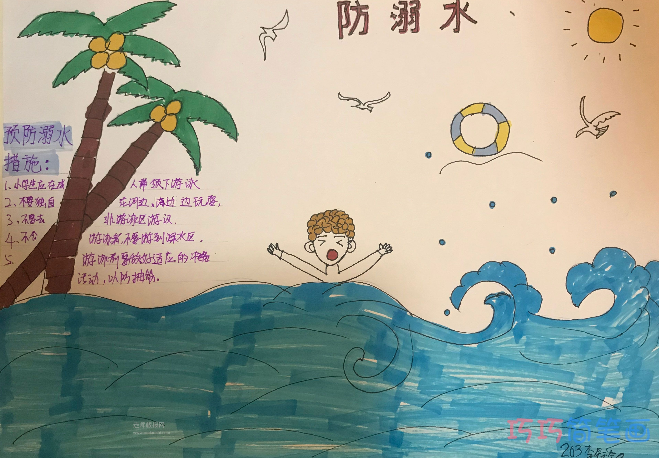 防溺水
预防溺水
措施：
1、小学生应在成 人带领下游泳
2、不要独自 在河边、海边 边玩磨。
3、不要去 非游泳区游泳
4、不会 游泳者,不要游到深水区。
5、 游泳前要做好适应的准备
活动，以防抽筋。
203李